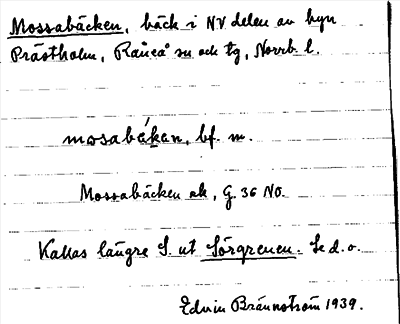 Mossabäcken, bäck i NV delen av byn
Prästholm, Råneå sn och tg, Norrb. l.
mosabäkan, bf. m.
Mossabäcken ek, G. 36 NO.
Kallas längre S. ut Sörgrenen. Se d. o.
Edvin Brännström 1939.